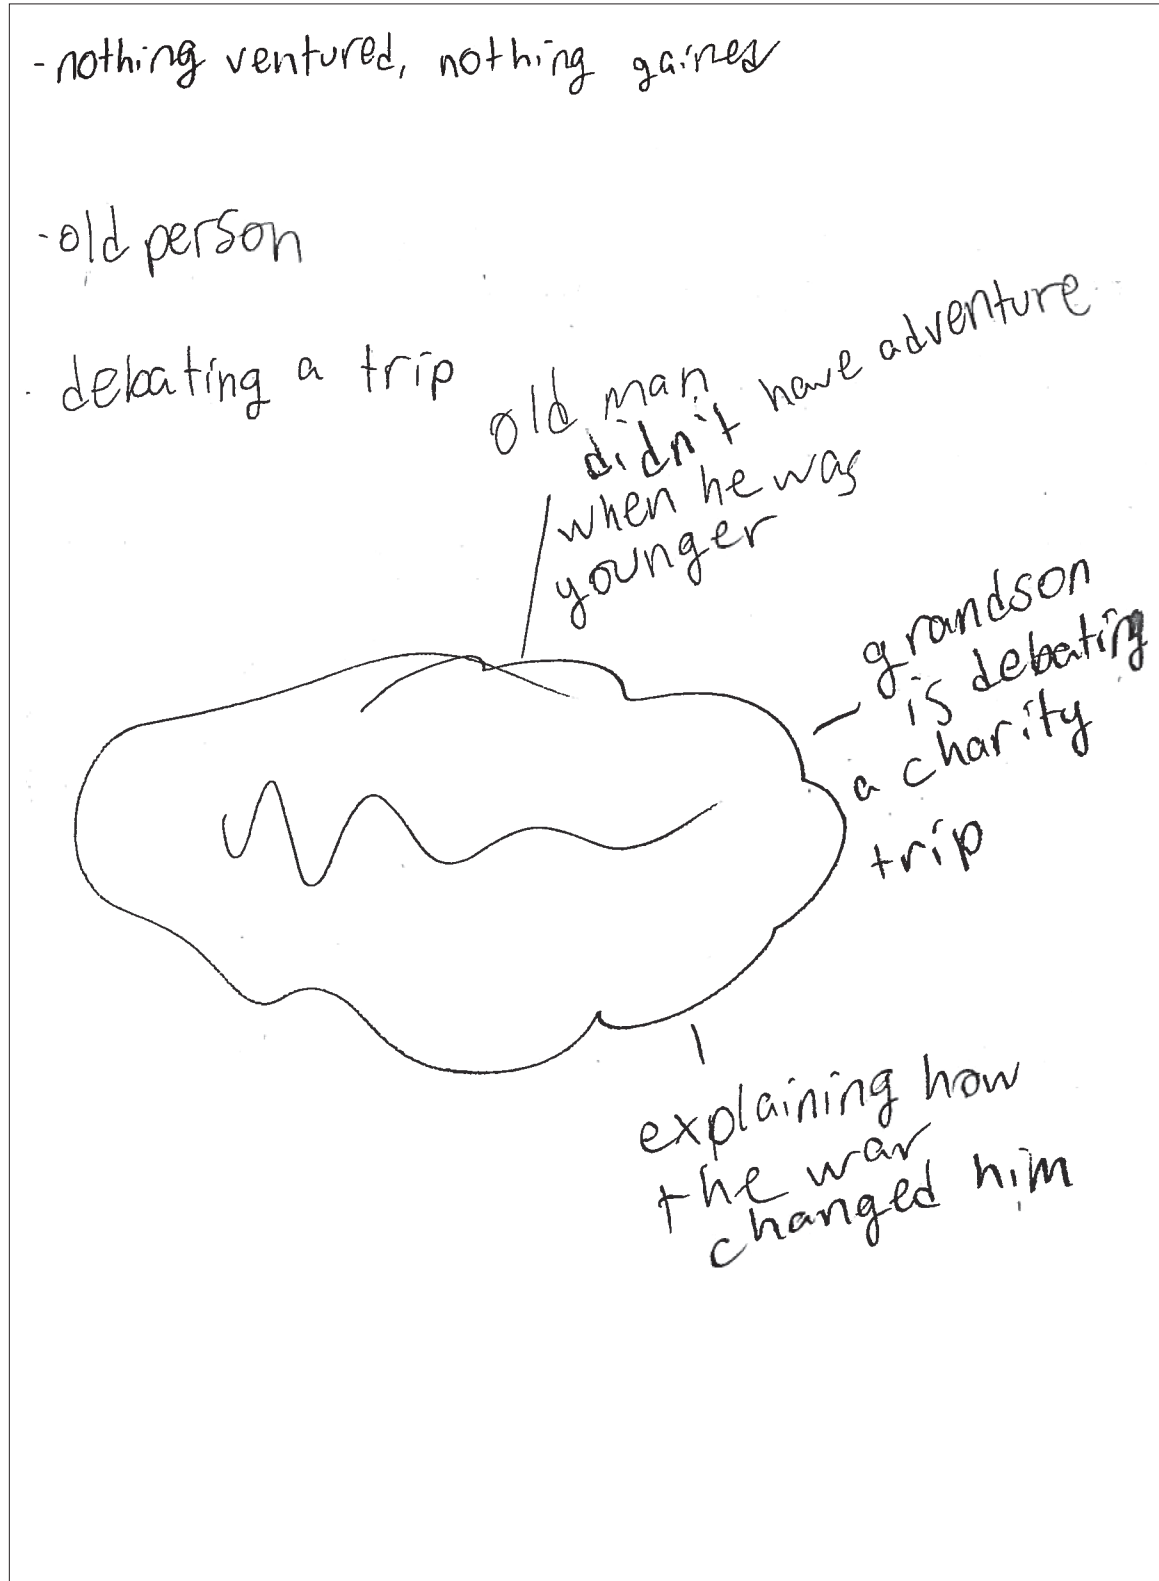 - nothing ventured, nothing gained
- old person
- debating a trip
old man
didn't have adventure
when he was
younger
grandson
is debating
a charity
trip
explaining how
the war
changed him